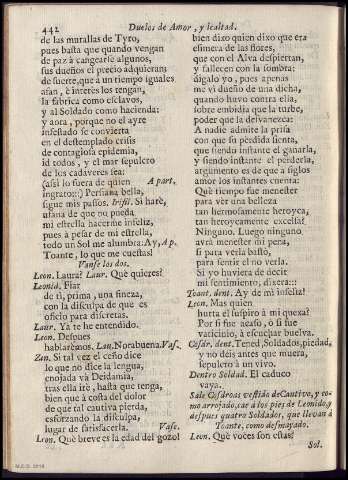 442 Duelos de Amor, y lealtad.
de las murallas de Tyro,
pues basta que quando vengan
de paz à cangearle algunos,
sus dueños el precio adquieran:
de suerte, que à un tiempo iguales
afan, è interès los tengan,
la fabrica como esclavos,
y al Soldado como hacienda:
y aora, porque no el ayre
infestado se convierta
en el destemplado crisis
de contagiosa epidemia,
id todos, y el mar sepulcro
de los cadaveres sea:
(assi lo fuera de quien A part.
ingrato::) Persiana bella,
sigue mis passos. Irifil. Si harè,
ufana de que no pueda
mi estrella hacerme infeliz,
pues à pesar de mi estrella,
todo un Sol me alumbra: Ay, Ap.
Toante, lo que me cuestas!
Vanse los dos.
Leon. Laura? Laur. Què quieres?
Leonid. Fiar
de tì, prima, una fineza,
con la disculpa de que es
oficio para discretas.
Laur. Yà te he entendido.
Leon. Despues
hablarèmos. Lau. Norabuena. Vas.
Zen. Si tal vez el ceño dice
lo que no dice la lengua,
enojada và Deidamia;
tras ella irè, hasta que tenga,
bien que à costa del dolor
de que tal cautiva pierda,
esforzando la disculpa,
lugar de satisfacerla. Vase.
Leon. Què breve es la edad del gozo!
bien dixo quien dixo que era
efimera de las flores,
que con el Alva despiertan,
y fallecen con la sombra:
digalo yo, pues apenas
me vì dueño de una dicha,
quando huvo contra ella,
sobre embidia que la turbe,
poder que la desvanezca:
A nadie admite la prisa
con que su perdida sienta,
que siendo instante el ganarla,
y siendo instante el perderla,
argumento es de que à siglos
amor los instantes cuenta:
Què tiempo fue menester
para ver una belleza
tan hermosamente heroyca,
tan heroycamente excelsa?
Ninguno. Luego ninguno
avrà menester mi pena,
si para verla bastò,
para sentir el no verla.
Si yo huviera de decir
mi sentimiento, dixera:::
Toant. dent. Ay de mì infeliz!
Leon. Mas quien
hurta el suspiro à mi quexa?
Por si fue acaso, ò si fue
vaticinio, à escuchar buelva.
Cosdr. dent. Tened, Soldados, piedad,
y no deis antes que muera,
sepulcro à un vivo.
Dentro Soldad. El caduco
vaya.
Sale Cosdroas vestido de Cautivo, y co-
mo arrojado, cae à los pies de Leonido, y
despues quatro Soldados, que llevan à
Toante, como desmayado.
Leon. Què voces son estas?
Sol.